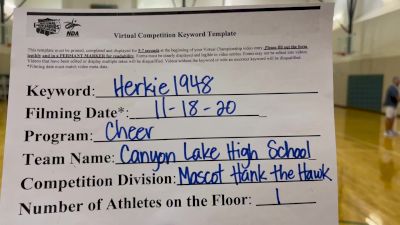 NDA
Virtual Competition Keyword Template
This template must be printed, completed and displayed for 5-7 seconds at the beginning of your Virtual Championship video entry. Please fill out the form
legibly and in a PERMANENT MARKER for readability. Forms must be clearly displayed and legible in video entries. Forms may not be edited into videos.
Videos that have been edited or display multiple takes will be disqualified. Videos without the keyword or with an incorrect keyword will be disqualified.
*Filming date must match video meta data.
Keyword: Herkie1948
Filming Date*: 11-18-20
Program: Cheer
Team Name: Canyon Lake High School
Competition Division: Mascot Hank the Hawk
Number of Athletes on the Floor: 1